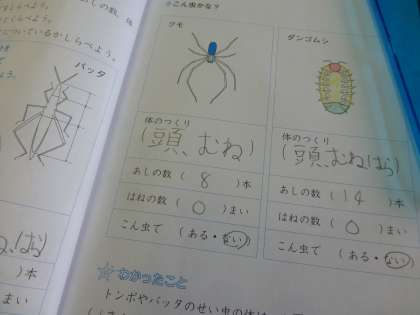 こん虫かな?
クモ
体のつくり
(頭、むね)
あしの数 ( 8 )本
はねの数 ( 0 )まい
こん虫で (ある・ない)
ダンゴムシ
体のつくり
(頭、むね、はら)
あしの数 ( 14 )本
はねの数 ( 0 )まい
こん虫で (ある・ない)
わかったこと
トンボやバッタのせい虫の体は
しらべよう。
あしの数、
についているかしらべよう。
バッタ
はら)
)本
)まい
ない)